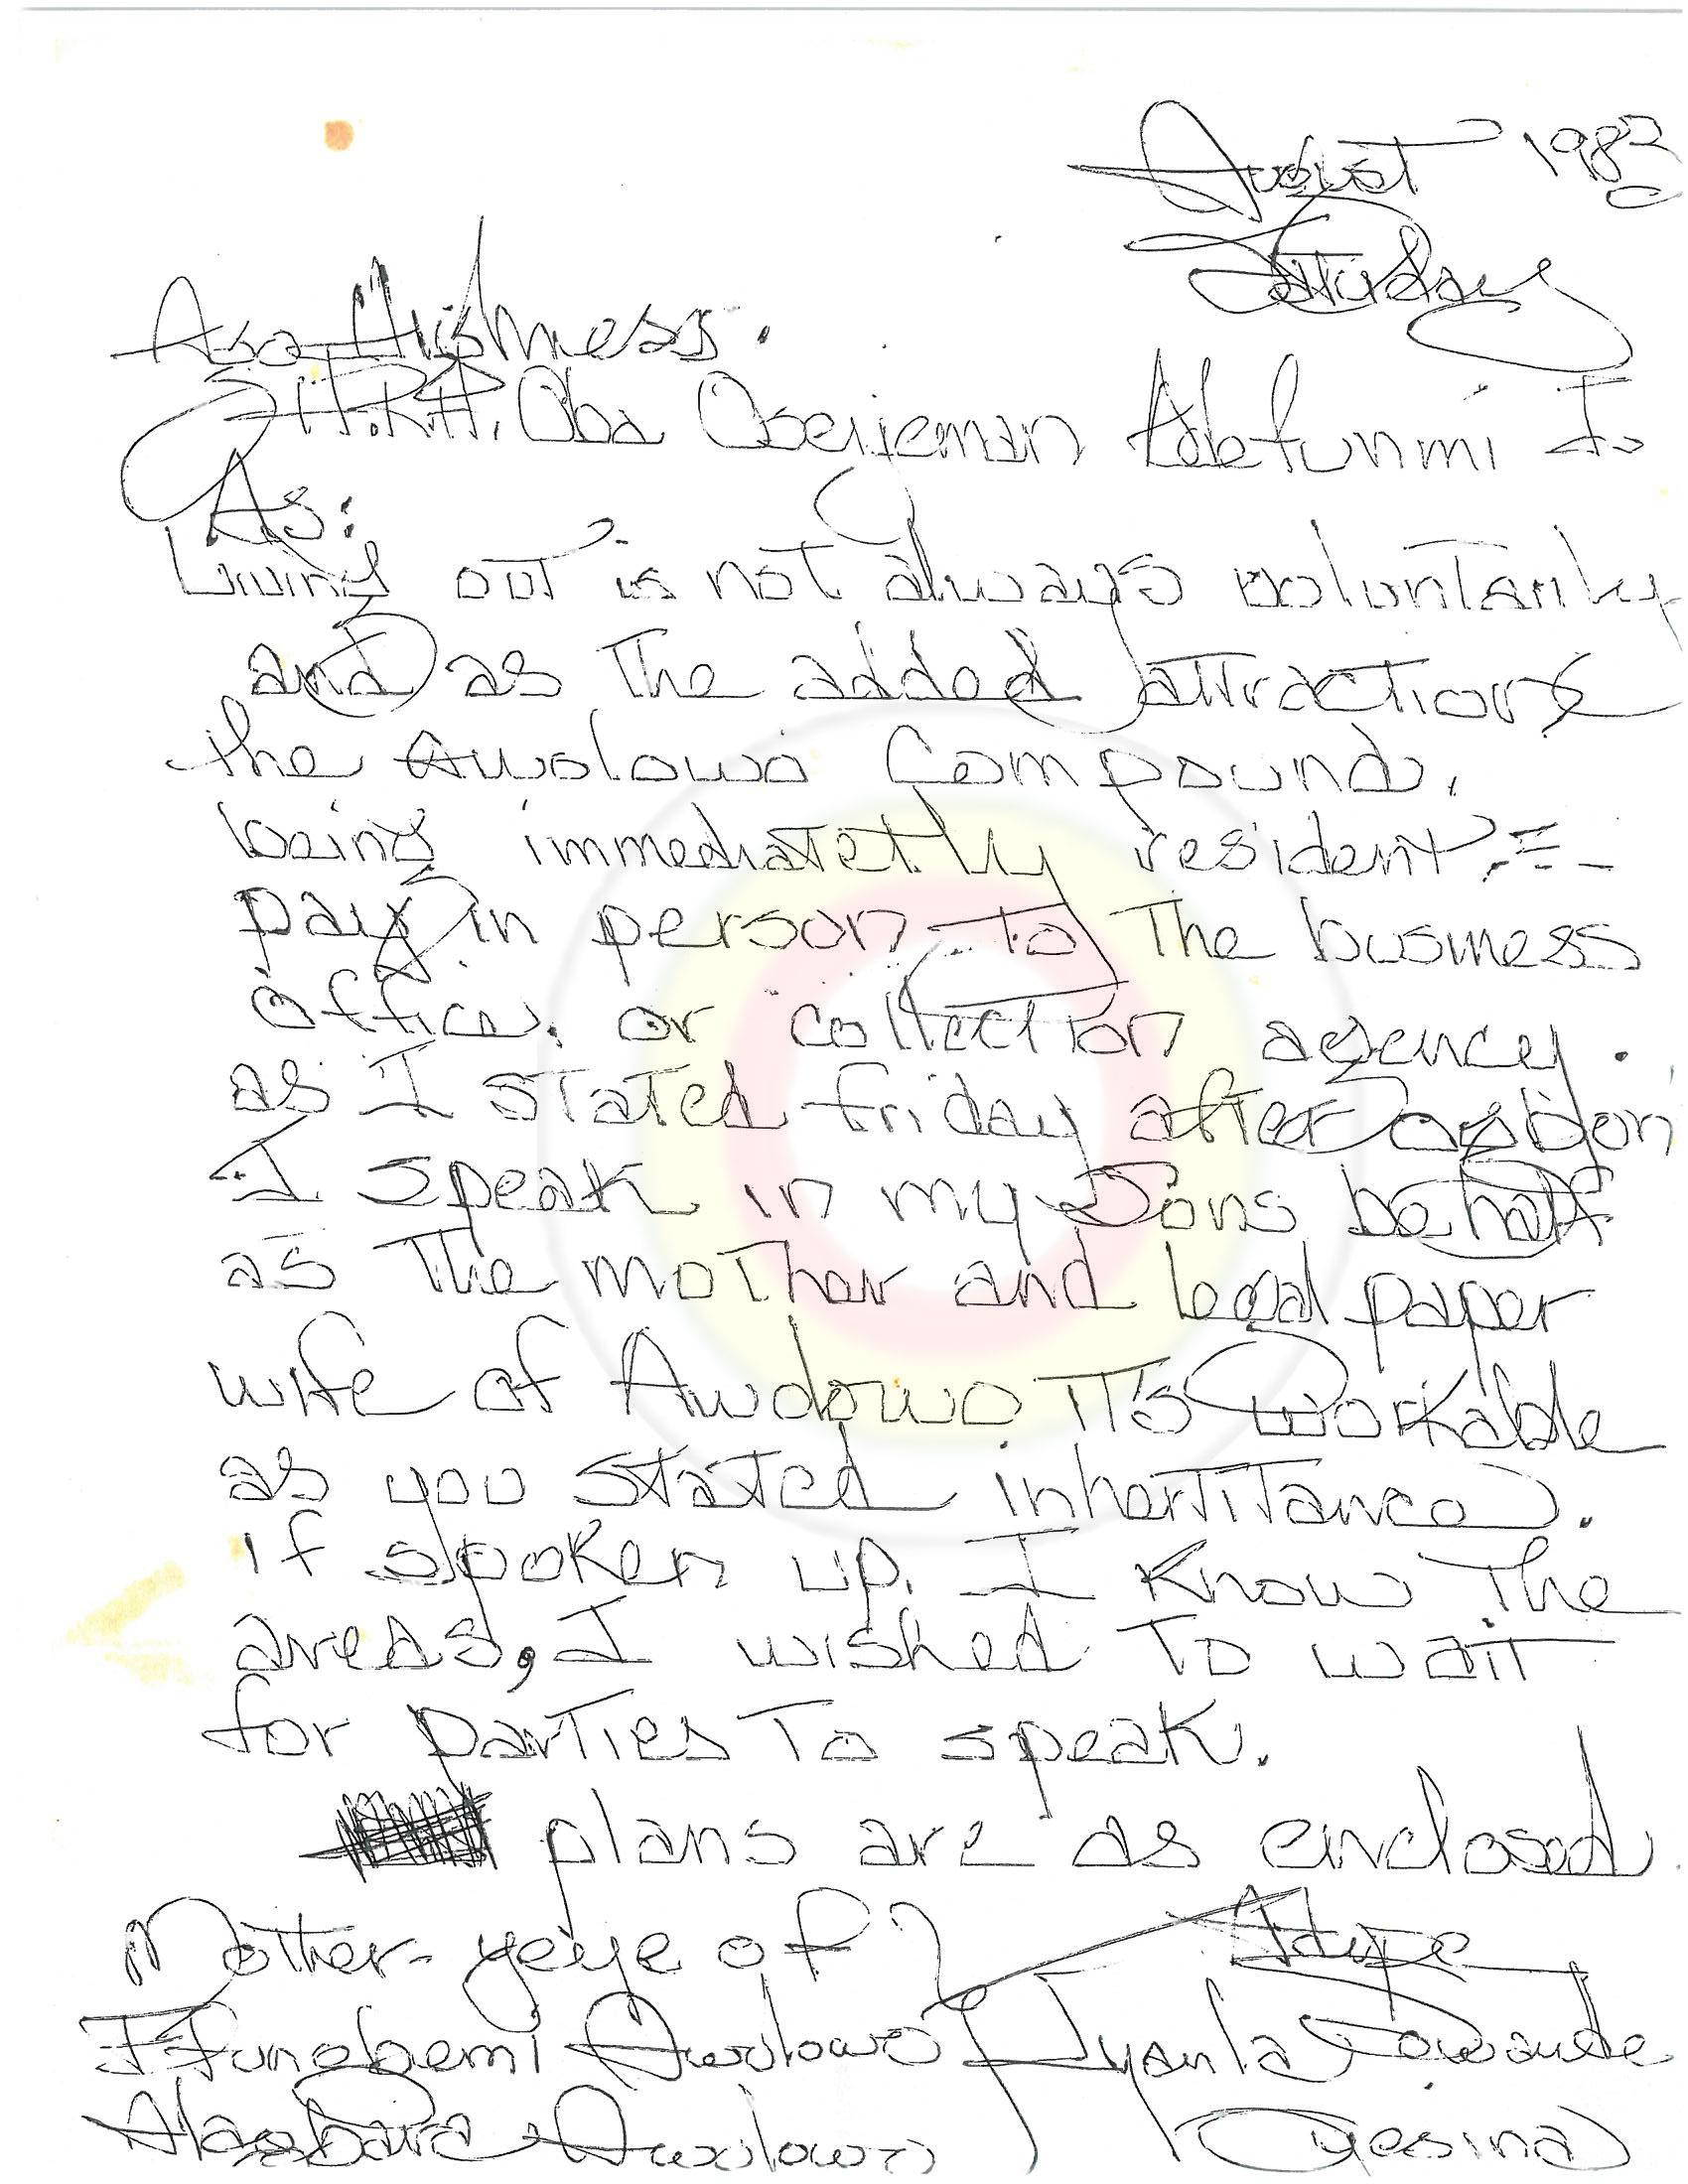 August 1982
Saturday
Asa Highness.
H.R.H. Oba Oseijeman Adefunmi I
As:
Living out is not always voluntarily
and as the added attractions
the Awolowo Compound.
being immediately resident.
pay in person to the business
office. or collection agency.
as I stated friday after
I speak in my Sons behalf
as the mother and legal paper
wife of Awolowo it's workable
as you stated inhertitance.
if spoken up. I know the
areas, I wished to wait
for parties to speak.
plans are as enclosed.
Mother-yeye of Adupe
Ifunebemi Awolowo Iyanla Sowande
Alagbara Awolowo Oyesina